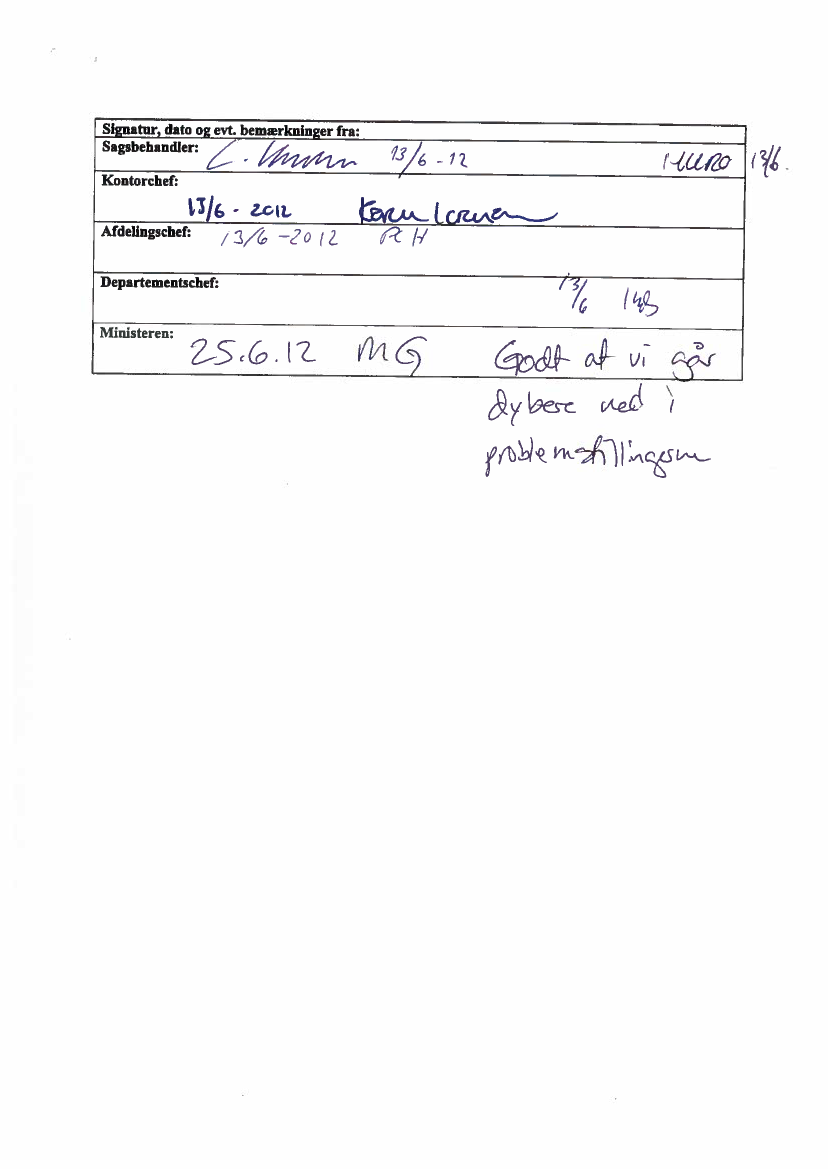 Signatur, dato og evt. bemærkninger fra:
Sagsbehandler: 13/6 - 12 13/6.
Kontorchef:
13/6 - 2012
Afdelingschef: 13/6 - 2012
Departementschef: 13/6
Ministeren: 25.6.12 MG Godt at vi går
dybere ned i
problemstillingerne